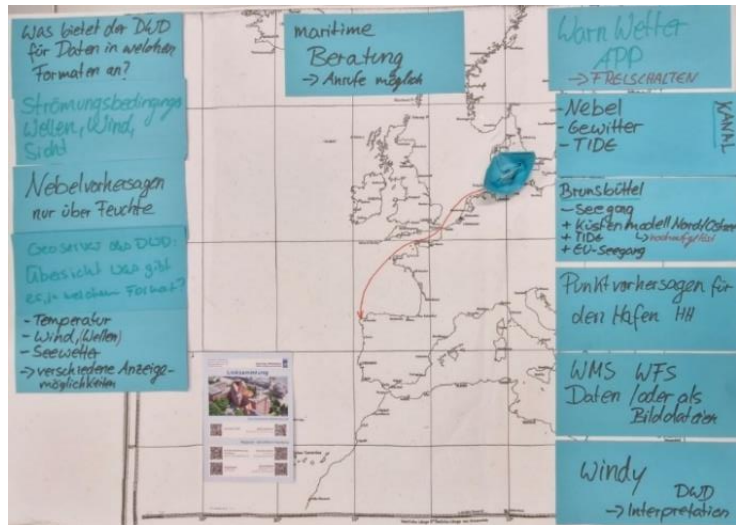 Was bietet der DWD
für Daten in welchen
Formaten an?
Strömungsbedingungs
Wellen, Wind,
Sicht
Nebelvorhersagen
nur über Feuchte
Geoserver des DWD:
Übersicht was gibt
es in welchem Format?
- Temperatur
- Wind, (Wellen)
- Seewetter
→ verschiedene Anzeige-
möglichkeiten
maritime
Beratung
→ Anrufe möglich
Linksammlung
Warn Wetter
APP
→ FREISCHALTEN
- Nebel
- Gewitter
- TIDE
KANAL
Brunsbüttel
- Seegang
+ Küstenmodell Nord/Ostsee
+ TIDE
+ EU-Seegang
Punktvorhersagen für
den Hafen HH
WMS WFS
Daten / oder als
Bilddateien
Windy
DWD
→ Interpretation